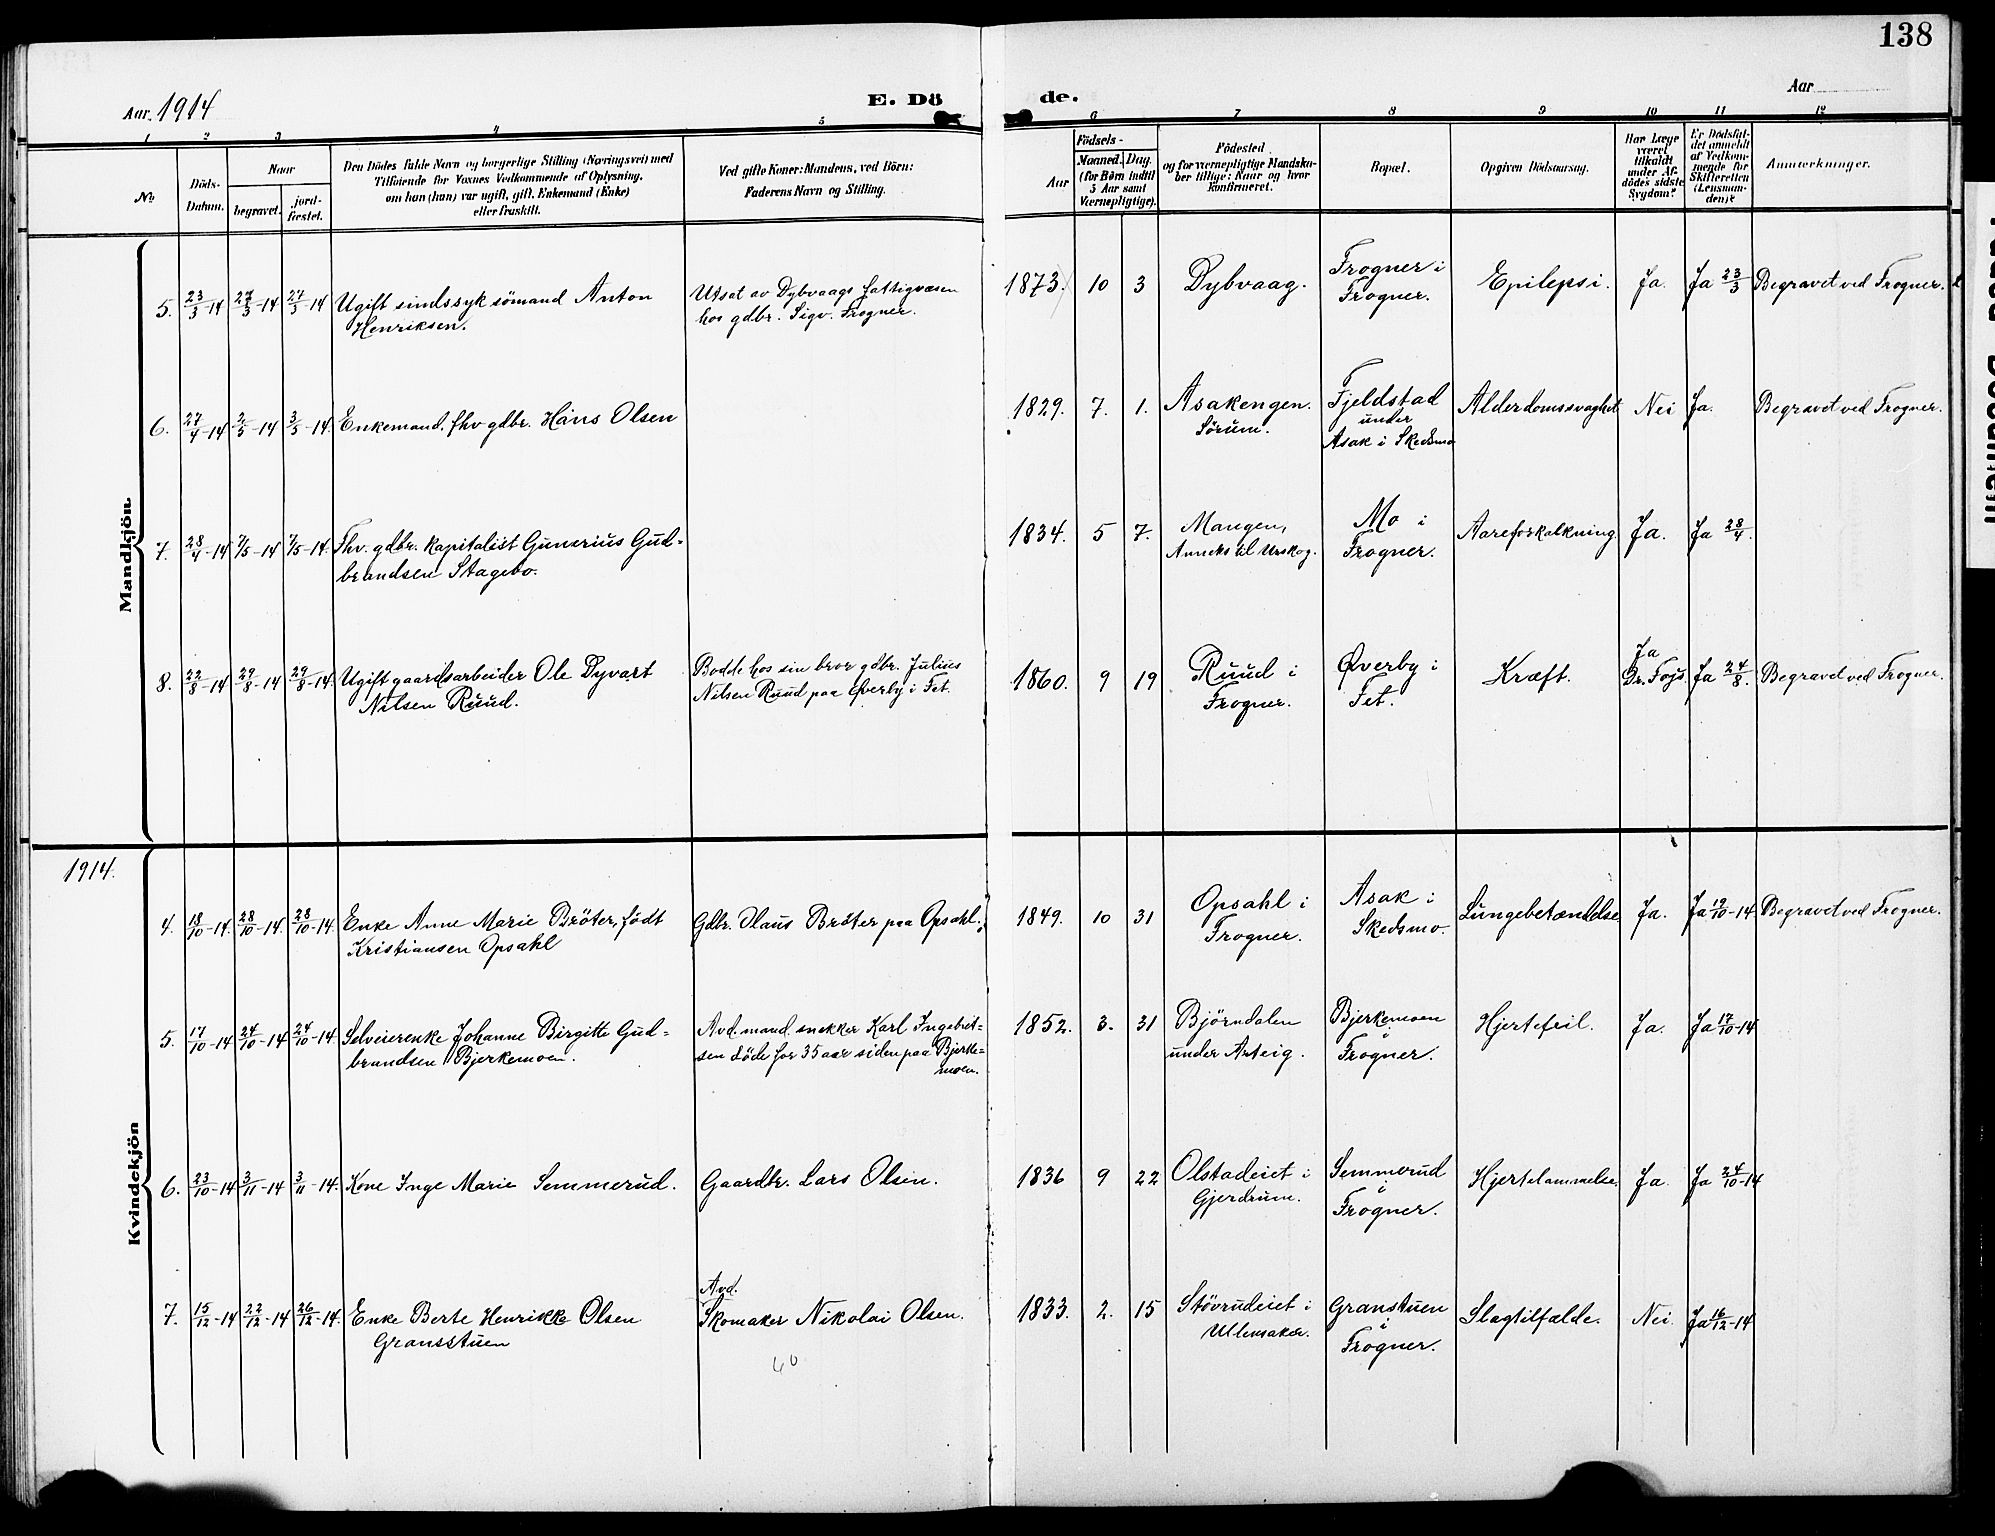 138
Aar 1914
E. Dö de.
Aar
1 2 3 4 5 6 7 8 9 10 11 12
No
Döds-Datum.
Naar
begravet.
jord-fæstet.
Den Dödes fulde Navn og borgerlige Stilling (Næringsvei) med
Tilföiende for Voxnes Vedkommende af Oplysning,
om han (hun) var ugift, gift, Enkemand (Enke)
eller fraskilt.
Ved gifte Koner: Mandens, ved Börn:
Faderens Navn og Stilling.
Födsels-
Aar
Maaned. Dag.
(for Börn indtil
5 Aar samt
Værnepligtige).
Födested
og for værnepligtige Mandska-
ber tillige: Naar og hvor
konfirmeret.
Bopæl.
Opgiven Dödsaarsag.
Har Læge
været
tilkaldt
under Af-
dödes sidste
Sygdom?
Er Dödsfal-
det anmeldt
af Vedkom-
mende for
Skifteretten
(Lensman-
den)?
Anmærkninger.
Mandkjön
5. 23/3-14 27/3-14 27/3-14 Ugift sindssyk sömand Anton
Henriksen.
Utsat av Dybvaags fattigvæsen
hos gdbr. Sigv. Frogner.
1873. 10 3 Dybvaag. Frogner i
Frogner.
Epilepsi. Ja. Ja 23/3 Begravet ved Frogner.
6. 27/4-14 2/5-14 3/5-14. Enkemand, fhv gdbr. Hans Olsen
1829. 7. 1. Asakengen.
Sörum.
Fjeldstad
under
Asak i Skedsmo
Alderdomssvaghet Nei Ja. Begravet ved Frogner.
7. 28/4-14 7/5-14 7/5-14. Fhv. gdbr. kapitalist Gunerius Gud-
brandsen Stagebo.
1834. 5 7. Mangen,
Anneks til Urskog.
Mo i
Frogner.
Aareforkalkning Ja. Ja 28/4.
8. 22/8-14 29/8-14 29/8-14. Ugift gaardsarbeider Ole Dyvart
Nilsen Ruud.
Bodde hos sin bror gdbr. Julius
Nilsen Ruud paa Øverby i Fet.
1860. 9 19 Ruud i
Frogner.
Øverby i
Fet.
Kræft. Ja
Dr. Fojs. Ja 24/8. Begravet ved Frogner.
1914.
Kvindekjön
4. 18/10-14. 28/10-14. 28/10-14. Enke Anne Marie Bröter, född
Kristiansen Opsahl
Gdbr. Olaus Bröter paa Opsahl.
1849. 10 31 Opsahl i
Frogner.
Asak i
Skedsmo.
Lungebetændelse Ja. Ja 19/10-14 Begravet ved Frogner.
5. 17/10-14 24/10-14 24/10-14 Selveierenke Johanne Birgitte Gud-
brandsen Bjerkemoen.
Avd. mand snekker Karl Ingebret-
sen döde for 35 aar siden paa Bjerke-
moen.
1852. 3. 31 Björndalen
under Arteig.
Bjerkemoen
i
Frogner.
Hjertefeil. Ja. Ja 17/10-14
6. 23/10-14 3/11-14 3/11-14. Kone Inge Marie Semmerud. Gaardbr. Lars Olsen.
1836 9 22 Olstadeiet i
Gjerdrum.
Semmerud
i
Frogner.
Hjertelammelse. Ja. Ja 24/10-14
7. 15/12-14 22/12-14 26/12-14. Enke Berte Henrikke Olsen
Gransstuen
Avd.
Skomaker Nikolai Olsen.
60
1833. 2. 15 Stövrudeiet i
Ullensaker.
Granstuen
i
Frogner.
Slagtilfælde. Nei. Ja 16/12-14